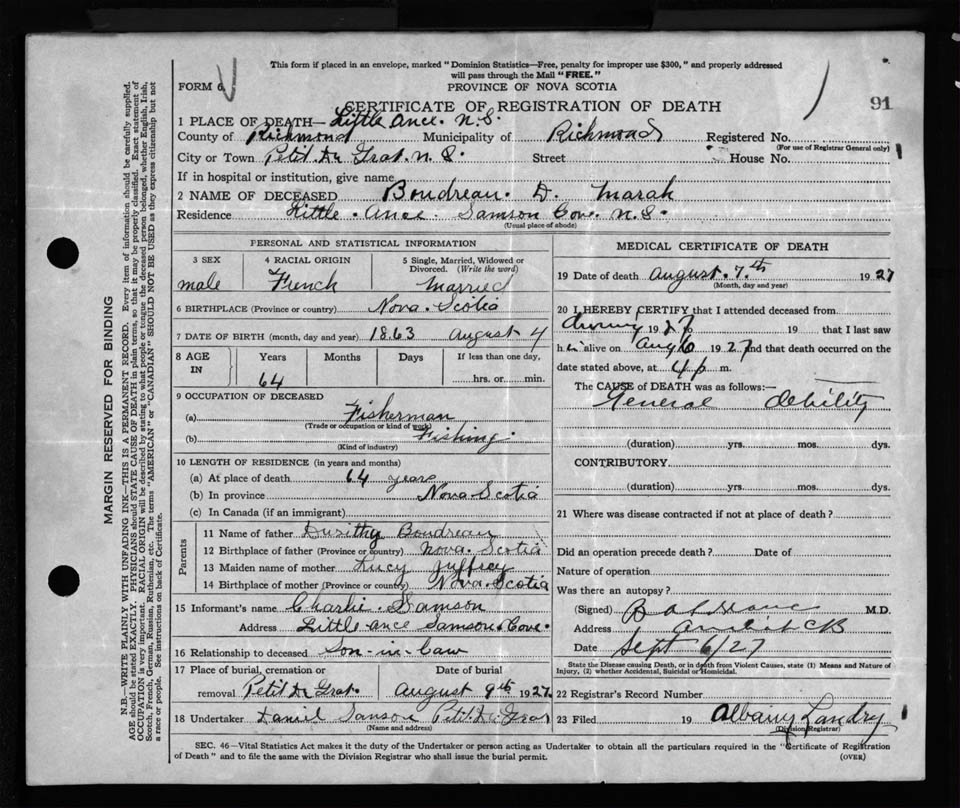 This form if placed in an envelope, marked "Dominion Statistics—Free, penalty for improper use $300," and properly addressed
will pass through the Mail "FREE."
FORM 6
PROVINCE OF NOVA SCOTIA
91
CERTIFICATE OF REGISTRATION OF DEATH
1 PLACE OF DEATH— Little Ance. N.S.
County of Richmond Municipality of Richmond Registered No.
(For use of Registrar General only)
City or Town Petit. De Grat. N.S. Street House No.
If in hospital or institution, give name
2 NAME OF DECEASED Boudreau. D. Marah
Residence Little. Ance. Samson Cove. N.S.
(Usual place of abode)
PERSONAL AND STATISTICAL INFORMATION
3 SEX 4 RACIAL ORIGIN 5 Single, Married, Widowed or
Divorced. (Write the word)
male French Married
6 BIRTHPLACE (Province or country) Nova. Scotia
7 DATE OF BIRTH (month, day and year) 1863 August 4
8 AGE IN Years Months Days If less than one day,
64 hrs. or min.
9 OCCUPATION OF DECEASED
(a) Fisherman
(Trade or occupation or kind of work)
(b) Fishing
(Kind of industry)
10 LENGTH OF RESIDENCE (in years and months)
(a) At place of death 64 years
(b) In province Nova Scotia
(c) In Canada (if an immigrant)
Parents
11 Name of father Boudreau
12 Birthplace of father (Province or country) Nova. Scotia
13 Maiden name of mother Lucy
14 Birthplace of mother (Province or country) Nova. Scotia
15 Informant's name Charlie. Samson
Address Little ance Samson. Cove.
16 Relationship to deceased Son-in-Law
17 Place of burial, cremation or Date of burial
removal Petit De Grat. August 9th 1927
18 Undertaker Daniel Samson Petit. De Grat
(Name and address)
MEDICAL CERTIFICATE OF DEATH
19 Date of death August. 7.th 1927
(Month, day and year)
20 I HEREBY CERTIFY that I attended deceased from
during 1927 19 that I last saw
him alive on Aug 6 1927 and that death occurred on the
date stated above, at 4 p m.
The CAUSE of DEATH was as follows:—
General debility
(duration) yrs. mos. dys.
CONTRIBUTORY
(duration) yrs. mos. dys.
21 Where was disease contracted if not at place of death?
Did an operation precede death? Date of
Nature of operation
Was there an autopsy?
(Signed) M.D.
Address Arichat CB
Date Sept 6/27
State the Disease causing Death, or in death from Violent Causes, state (1) Means and Nature of
Injury, (2) whether Accidental, Suicidal or Homicidal.
22 Registrar's Record Number
23 Filed 19 Albainy Landry
(Division Registrar)
SEC. 46—Vital Statistics Act makes it the duty of the Undertaker or person acting as Undertaker to obtain all the particulars required in the "Certificate of Registration
of Death" and to file the same with the Division Registrar who shall issue the burial permit.
(OVER)
MARGIN RESERVED FOR BINDING
N.B.—WRITE PLAINLY WITH UNFADING INK—THIS IS A PERMANENT RECORD. Every item of information should be carefully supplied.
AGE should be stated EXACTLY. PHYSICIANS should STATE CAUSE OF DEATH in plain terms, so that it may be properly classified. Exact statement of
OCCUPATION is very important. RACIAL ORIGIN will be described by stating to what people or tongue the deceased person belonged, whether English, Irish,
Scotch, French, German, Russian, Ruthenian, etc. The terms "AMERICAN" or "CANADIAN" SHOULD NOT BE USED as they express citizenship but not
a race or people. See instructions on back of Certificate.